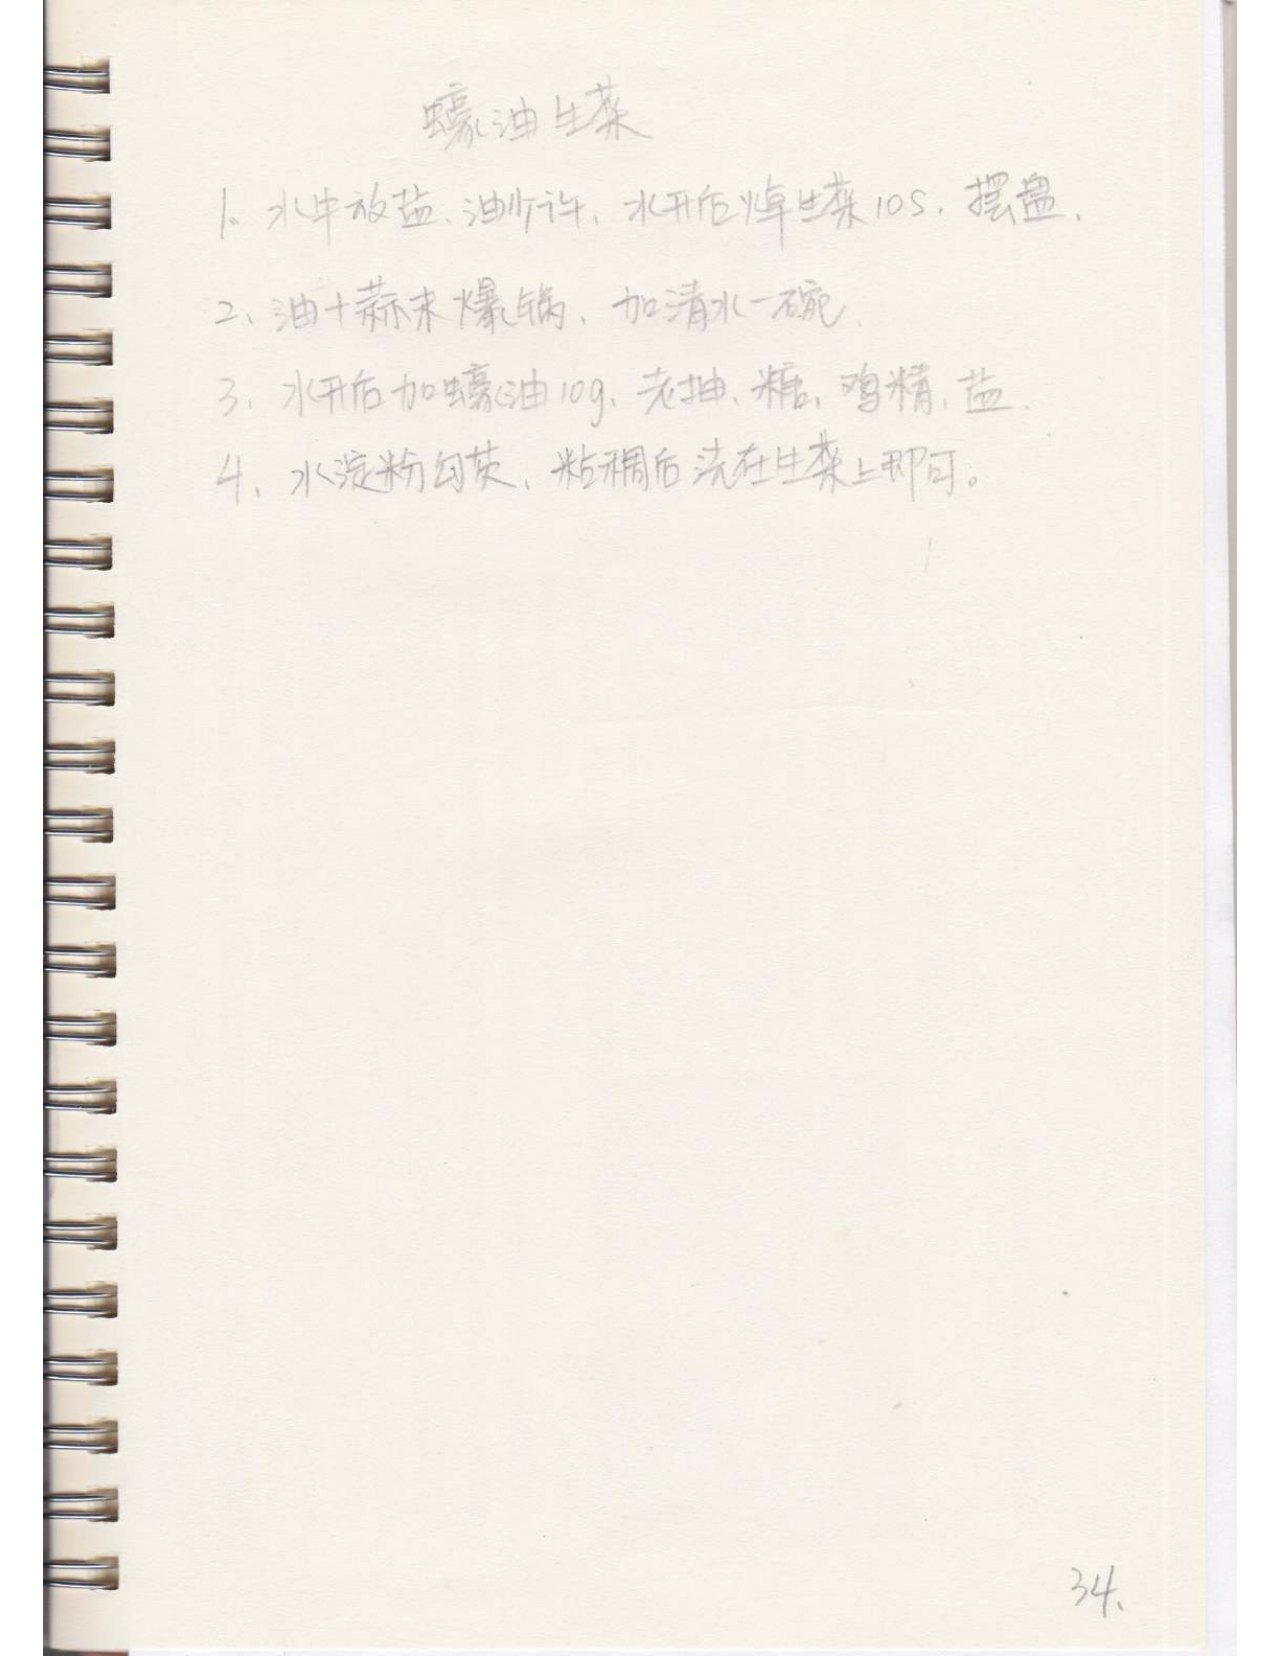 蠔油生菜
1. 水中放盐、油少许、水开后焯生菜10S. 摆盘.
2、油+蒜末爆锅、加清水一碗.
3、水开后加蠔油10g、老抽、糖、鸡精、盐.
4、水淀粉勾芡、粘稠后浇在生菜上即可。
34、